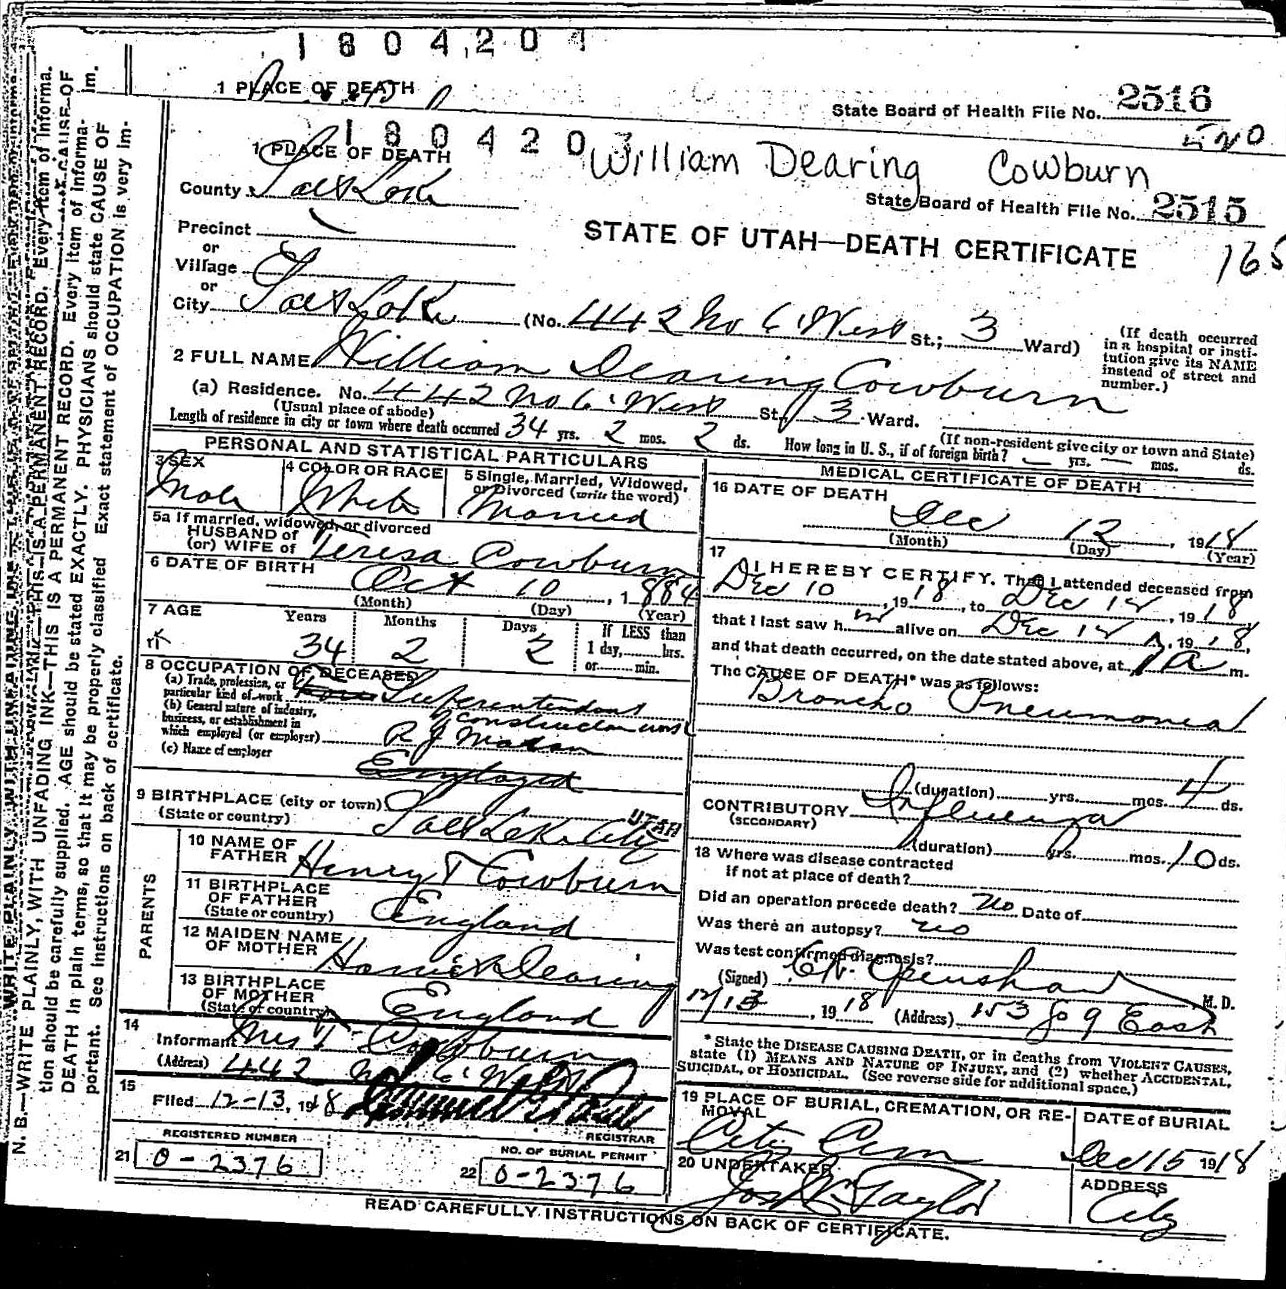 1804204
1 PLACE OF DEATH
State Board of Health File No. 2516
1804203
William Dearing Cowburn
1 PLACE OF DEATH
County Salt Lake
State Board of Health File No. 2515
Precinct
STATE OF UTAH—DEATH CERTIFICATE
165
or
Village
or
City Salt Lake (No. 442 No 6 West St.; 3 Ward)
(If death occurred in a hospital or insti-
tution give its NAME
instead of street and
number.)
2 FULL NAME William Dearing Cowburn
(a) Residence. No. 442 No 6 West St. 3 Ward.
(Usual place of abode) (If non-resident give city or town and State)
Length of residence in city or town where death occurred 34 yrs. 2 mos. 2 ds. How long in U. S., if of foreign birth? yrs. mos. ds.
PERSONAL AND STATISTICAL PARTICULARS
3 SEX Male
4 COLOR OR RACE White
5 Single, Married, Widowed,
or Divorced (write the word)
Married
5a If married, widowed, or divorced
HUSBAND of
(or) WIFE of Teresa Cowburn
6 DATE OF BIRTH Oct 10, 1884
(Month) (Day) (Year)
7 AGE Years Months Days If LESS than
1 day, hrs.
or min.
34 2 2
8 OCCUPATION OF DECEASED
(a) Trade, profession, or
particular kind of work Superentendent
(b) General nature of industry,
business, or establishment in
which employed (or employer)
of construction work
(c) Name of employer
9 BIRTHPLACE (city or town)
(State or country) Salt Lake City UTAH
PARENTS
10 NAME OF
FATHER Henry T Cowburn
11 BIRTHPLACE
OF FATHER
(State or country) England
12 MAIDEN NAME
OF MOTHER Dearing
13 BIRTHPLACE
OF MOTHER
(State or country) England
14
Informant Mrs T Cowburn
(Address) 442 No 6 West
15
Filed 12-13, 1918
REGISTRAR
REGISTERED NUMBER
21 0-2376
NO. OF BURIAL PERMIT
22 0-2376
MEDICAL CERTIFICATE OF DEATH
16 DATE OF DEATH
Dec 12, 1918
(Month) (Day) (Year)
17
I HEREBY CERTIFY, That I attended deceased from
Dec 10, 1918, to Dec 12, 1918
that I last saw him alive on Dec 12, 1918,
and that death occurred, on the date stated above, at 1 a m.
The CAUSE OF DEATH* was as follows:
Broncho Pneumonia
(duration) yrs. mos. 4 ds.
CONTRIBUTORY Influenza
(SECONDARY)
(duration) yrs. mos. 10 ds.
18 Where was disease contracted
if not at place of death?
Did an operation precede death? no Date of
Was there an autopsy? no
Was test confirmed diagnosis?
(Signed) Openshaw M. D.
12/13, 1918 (Address) 153 So 9 East
* State the DISEASE CAUSING DEATH, or in deaths from VIOLENT CAUSES,
state (1) MEANS AND NATURE OF INJURY, and (2) whether ACCIDENTAL,
SUICIDAL, or HOMICIDAL. (See reverse side for additional space.)
19 PLACE OF BURIAL, CREMATION, OR RE-
MOVAL
City Cem
DATE of BURIAL
Dec 15 1918
20 UNDERTAKER
Jos Wm Taylor
ADDRESS
City
READ CAREFULLY INSTRUCTIONS ON BACK OF CERTIFICATE.
N. B.—WRITE PLAINLY, WITH UNFADING INK—THIS IS A PERMANENT RECORD. Every item of informa-
tion should be carefully supplied. AGE should be stated EXACTLY. PHYSICIANS should state CAUSE OF
DEATH in plain terms, so that it may be properly classified. Exact statement of OCCUPATION is very im-
portant. See instructions on back of certificate.